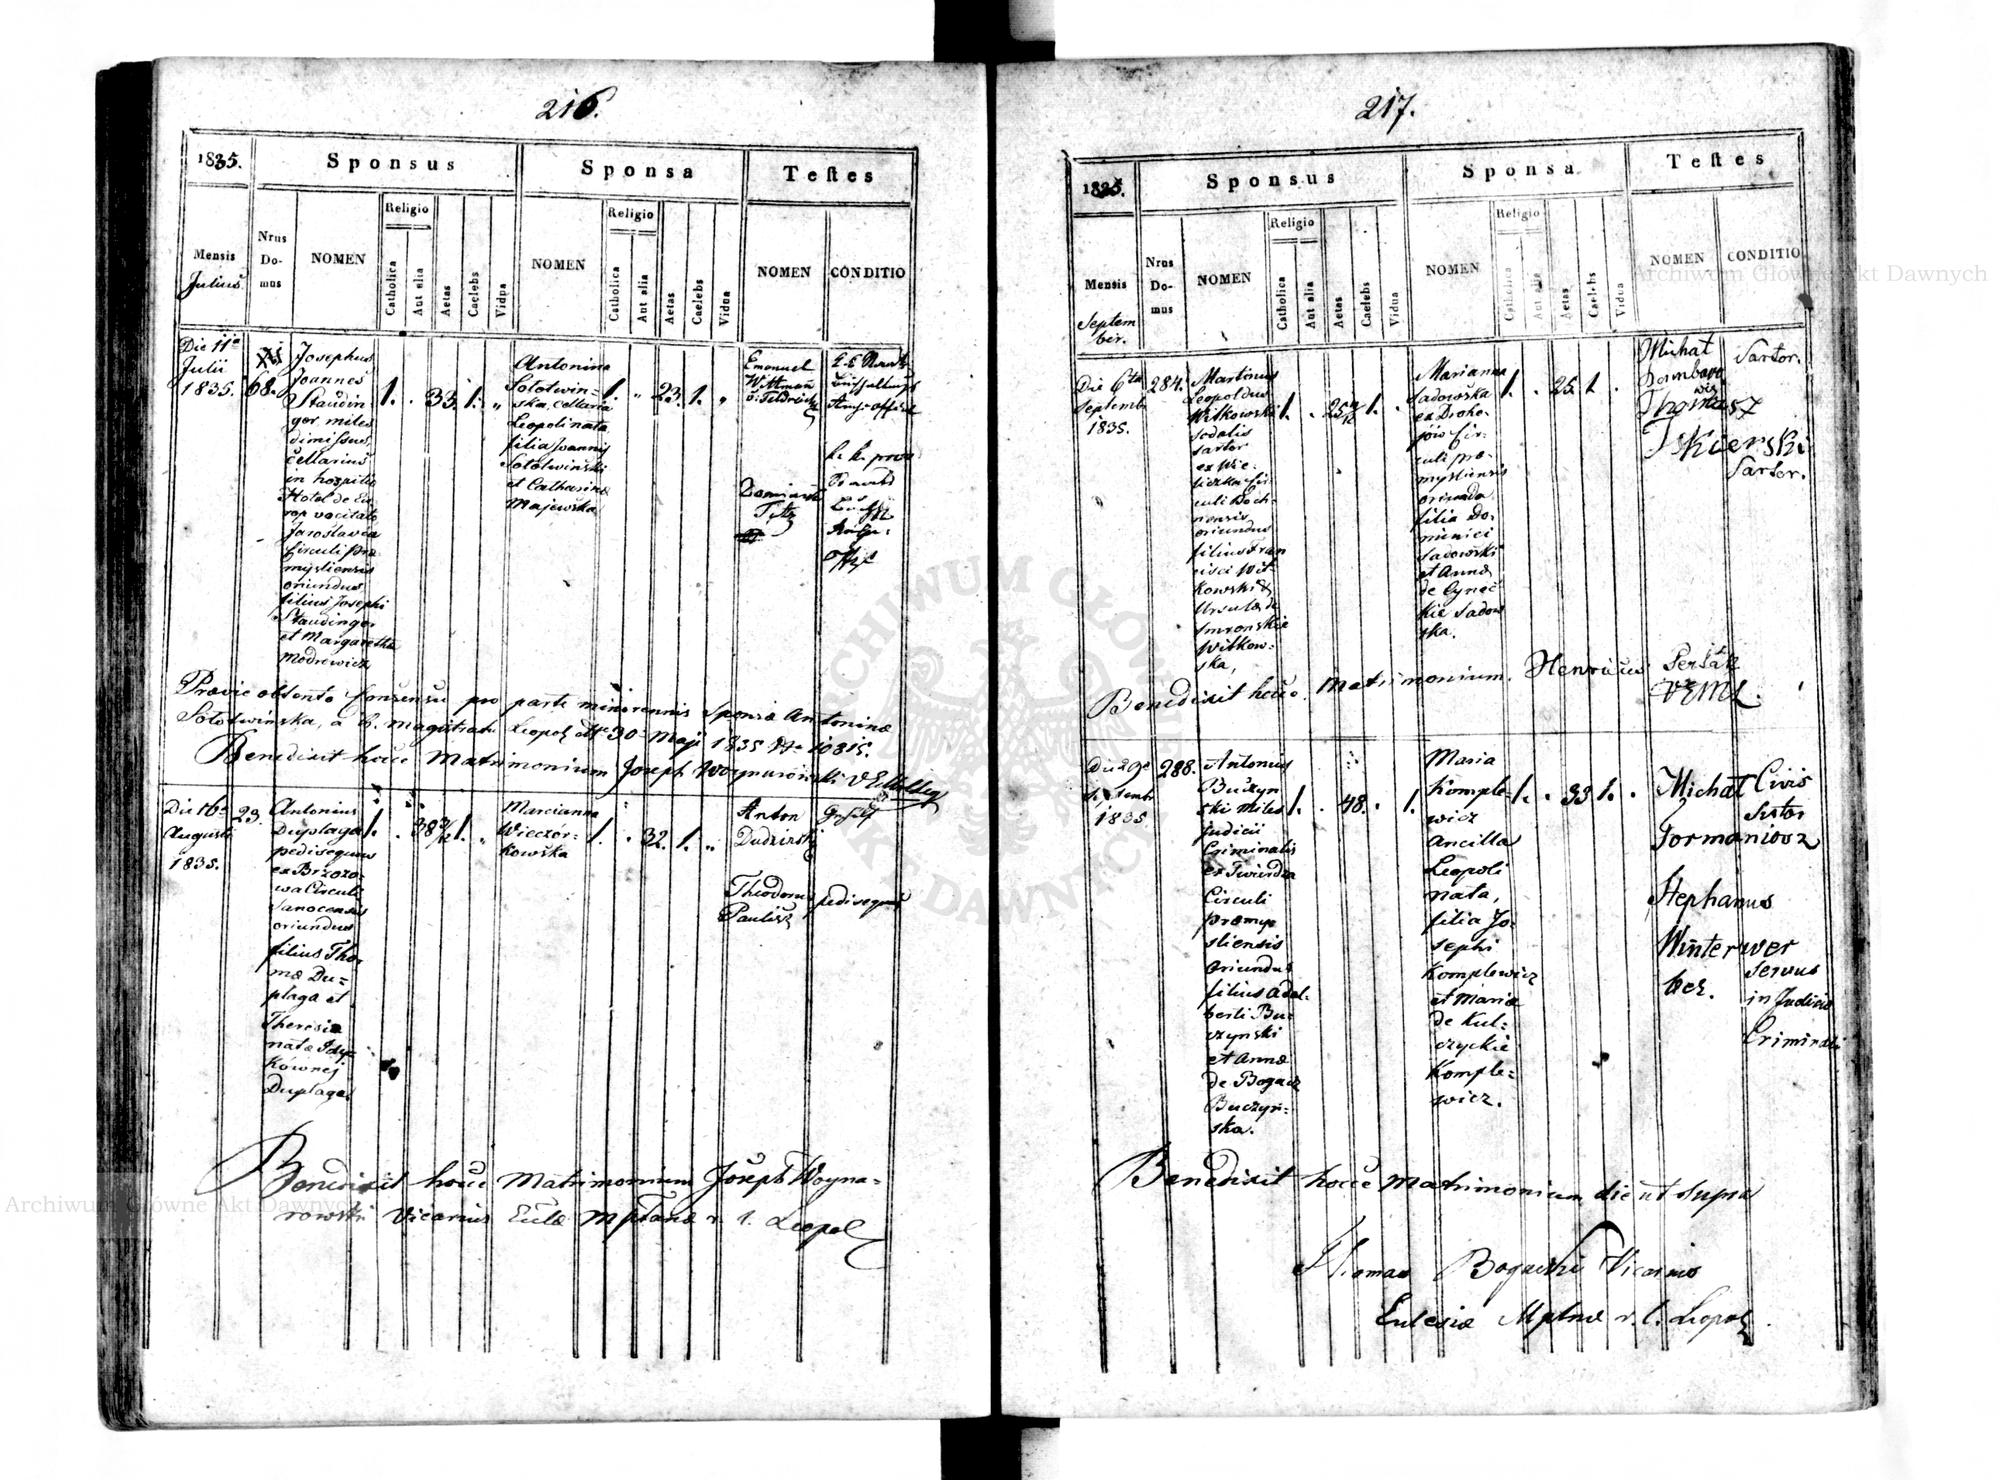 216.
1835.
Sponsus
Sponsa
Testes
Mensis
Julius
Nrus
Do-
mus
NOMEN
Religio
Catholica
Aut alia
Aetas
Caelebs
Vidua
NOMEN
Religio
Catholica
Aut alia
Aetas
Caelebs
Vidua
NOMEN
CONDITIO
Die 11a
Julii
1835.
68.
Josephus
Joannes
Staudin
ger miles
dimissus,
Cellarius
in hospitio
Hotel de Eu
rop vocitato
Jaroslavia
Circuli Pre
mysliensis
oriundus
filius Josephi
Staudinger
et Margaretha
Modrewicz
1.
33.
1.
Antonina
Sołotwin-
ska, Cellaria
Leopoli nata
filia Joannis
Sołotwiński
et Catharina
Majewska
1.
23.
1.
Emanuel
Wittman
v. Feldrück
k. k. prov
Praevie obtento Consensu pro parte minorennis Sponsae Antoninae
Sołotwińska, a C. Magistratu Leopol dto 30 Maji 1835 No 10815.
Benedixit hocce Matrimonium Joseph Woynarowski
Die 16a
Augusti
1835.
23.
Antonius
Duplaga
pedisequus
ex Brzozo-
wa Circuli
Sanocensis
oriundus
filius Tho-
mae Du-
plaga et
Theresiae
natae
kównej
Duplaga
1.
38
1.
Marcianna
Wieczor-
kowska
1.
32.
1.
Anton
Dudzinski
Theodorus
Paulisz
pedisequus
Benedixit hocce Matrimonium Joseph Woyna-
rowski Vicarius Eccl. Mplanae r. l. Leopol
217.
1835.
Sponsus
Sponsa
Testes
Mensis
Septem
ber.
Nrus
Do-
mus
NOMEN
Religio
Catholica
Aut alia
Aetas
Caelebs
Vidua
NOMEN
Religio
Catholica
Aut alia
Aetas
Caelebs
Vidua
NOMEN
CONDITIO
Die 6ta
Septemb
1835.
284.
Martinus
Leopoldus
Witkowski
Sodalis
Sartor
ex Wie-
liczka Cir
culi Boch-
nensis
oriundus
filius Fran
cisci Wit-
kowski &
Ursulae de
Smronskie
Witkow-
ska,
1.
25
1.
Marianna
Sadowska
ex Droho-
jów Cir-
culi Pre-
mysliensis
oriunda
filia Do-
minici
Sadowski
et Annae
de Cynac
kie Sadow
ska.
1.
25.
1.
Michał
Dombrow
wicz
Sartor.
Thomasz
Iskierski
Sartor.
Benedixit hocce Matrimonium. Henricus
Die 29e
Septembr
1835
288.
Antonius
Buczyn
ski Miles
Judicii
Criminalis
ex Twierdza
Circuli
Premys
sliensis
oriundus
filius Adal-
berti Bu-
czynski
et Annae
de Bogacz
Buczyn-
ska.
1.
48.
1.
Maria
Komple-
wicz
Ancilla
Leopoli
nata,
filia Jo-
sephi
Komplewicz
et Mariae
de Kul-
czyckie
Komple-
wicz.
1.
33
1.
Michał
Formaniosz
Civis
Sutor
Stephanus
Winterwer
ber.
Servus
in Judicio
Criminali
Benedixit hocce Matrimonium die ut Supra
Thomas Boguski Vicarius
Eclesiae Mplnae r. l. Leopol
Archiwum Główne Akt Dawnych
Archiwum Główne Akt Dawnych
ARCHIWUM GŁÓWNE AKT DAWNYCH